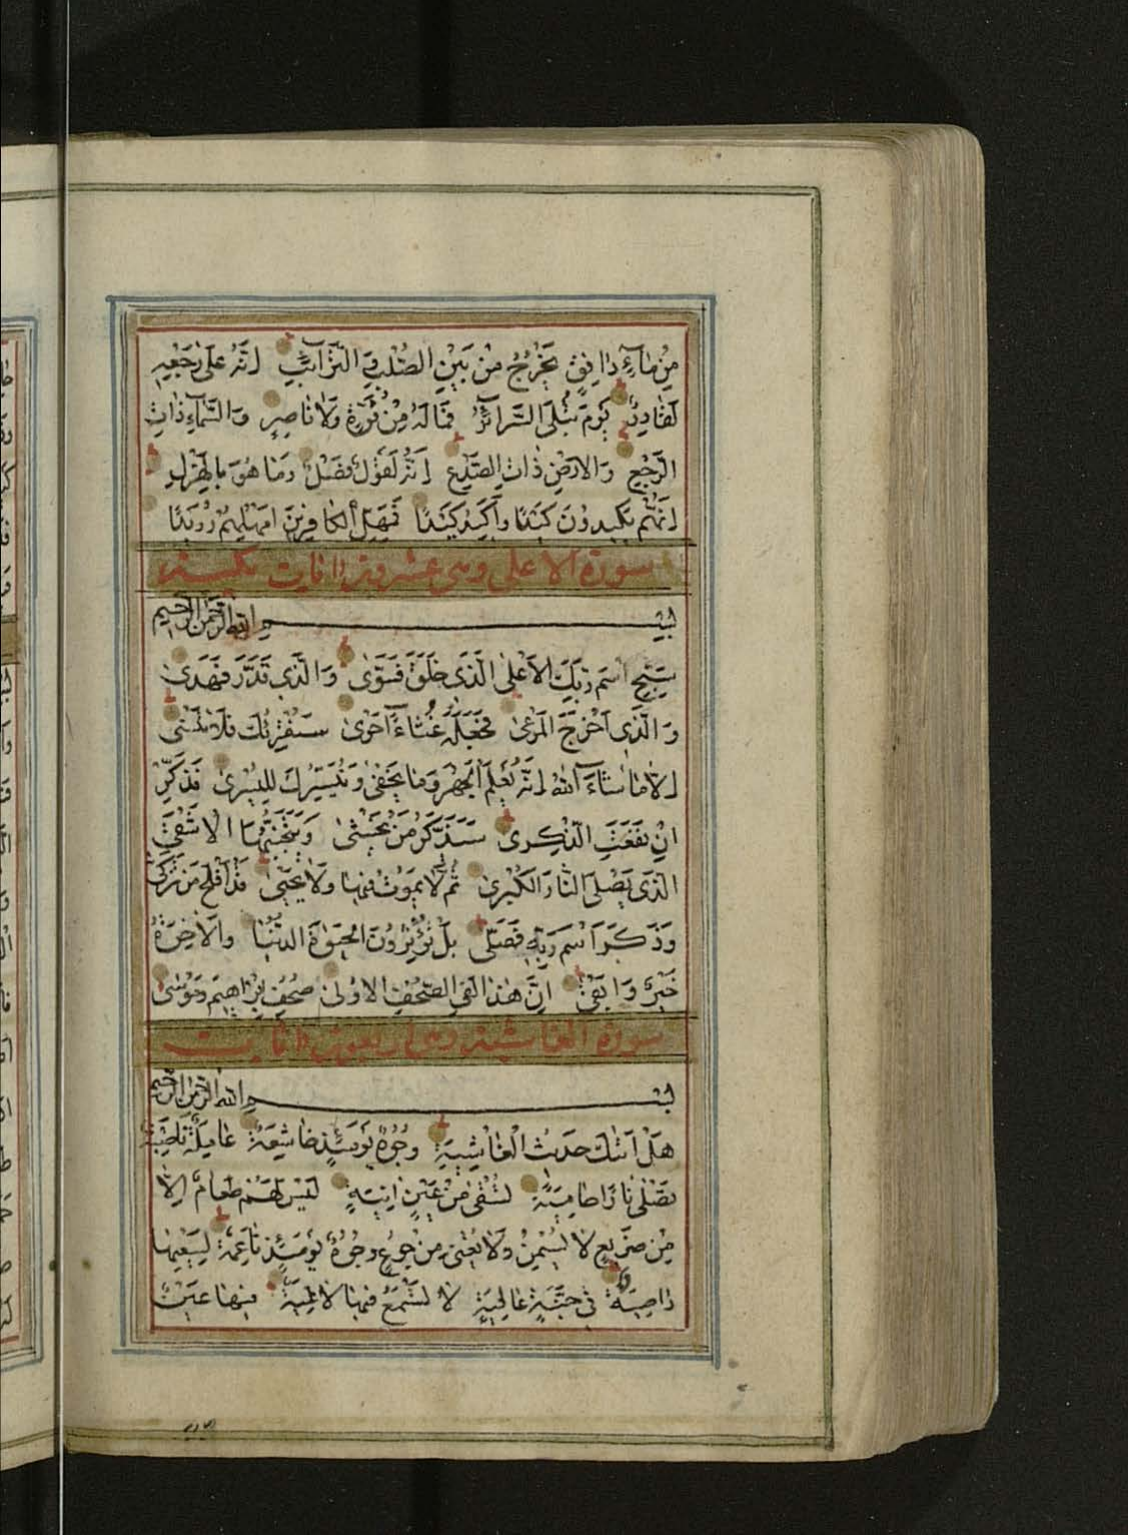 مِنْ مَاءٍ دَافِقٍ يَخْرُجُ مِنْ بَيْنِ الصُّلْبِ وَ التَّرَائِبِ اِنَّهُ عَلٰى رَجْعِهِ
لَقَادِرٌ يَوْمَ تُبْلَى السَّرَائِرُ فَمَا لَهُ مِنْ قُوَّةٍ وَلَا نَاصِرٍ وَ السَّمَاءِ ذَاتِ
الرَّجْعِ وَ الْاَرْضِ ذَاتِ الصَّدْعِ اِنَّهُ لَقَوْلٌ فَصْلٌ وَمَا هُوَ بِالْهَزْلِ
اِنَّهُمْ يَكِيدُونَ كَيْدًا وَاَكِيدُ كَيْدًا فَمَهِّلِ الْكَافِرِينَ اَمْهِلْهُمْ رُوَيْدًا
سورة الاعلى وهي عشرون ايات مكية
بِسْمِ اللّٰهِ الرَّحْمٰنِ الرَّحِيمِ
سَبِّحِ اسْمَ رَبِّكَ الْاَعْلَى الَّذِي خَلَقَ فَسَوّٰى وَ الَّذِي قَدَّرَ فَهَدٰى
وَ الَّذِي اَخْرَجَ الْمَرْعٰى فَجَعَلَهُ غُثَاءً اَحْوٰى سَنُقْرِئُكَ فَلَا تَنْسٰى
اِلَّا مَا شَاءَ اللّٰهُ اِنَّهُ يَعْلَمُ الْجَهْرَ وَمَا يَخْفٰى وَنُيَسِّرُكَ لِلْيُسْرٰى فَذَكِّرْ
اِنْ نَفَعَتِ الذِّكْرٰى سَيَذَّكَّرُ مَنْ يَخْشٰى وَيَتَجَنَّبُهَا الْاَشْقَى
الَّذِي يَصْلَى النَّارَ الْكُبْرٰى ثُمَّ لَا يَمُوتُ فِيهَا وَلَا يَحْيٰى قَدْ اَفْلَحَ مَنْ تَزَكّٰى
وَذَكَرَ اسْمَ رَبِّهِ فَصَلّٰى بَلْ تُؤْثِرُونَ الْحَيٰوةَ الدُّنْيَا وَالْاٰخِرَةُ
خَيْرٌ وَ اَبْقٰى اِنَّ هٰذَا لَفِي الصُّحُفِ الْاُولٰى صُحُفِ اِبْرٰهِيمَ وَمُوسٰى
سورة الغاشية وهي ايات
بِسْمِ اللّٰهِ الرَّحْمٰنِ الرَّحِيمِ
هَلْ اَتٰيكَ حَدِيثُ الْغَاشِيَةِ وُجُوهٌ يَوْمَئِذٍ خَاشِعَةٌ عَامِلَةٌ نَاصِبَةٌ
تَصْلٰى نَارًا حَامِيَةً تُسْقٰى مِنْ عَيْنٍ اٰنِيَةٍ لَيْسَ لَهُمْ طَعَامٌ اِلَّا
مِنْ ضَرِيعٍ لَا يُسْمِنُ وَلَا يُغْنِي مِنْ جُوعٍ وُجُوهٌ يَوْمَئِذٍ نَاعِمَةٌ لِسَعْيِهَا
رَاضِيَةٌ فِي جَنَّةٍ عَالِيَةٍ لَا تَسْمَعُ فِيهَا لَاغِيَةً فِيهَا عَيْنٌ